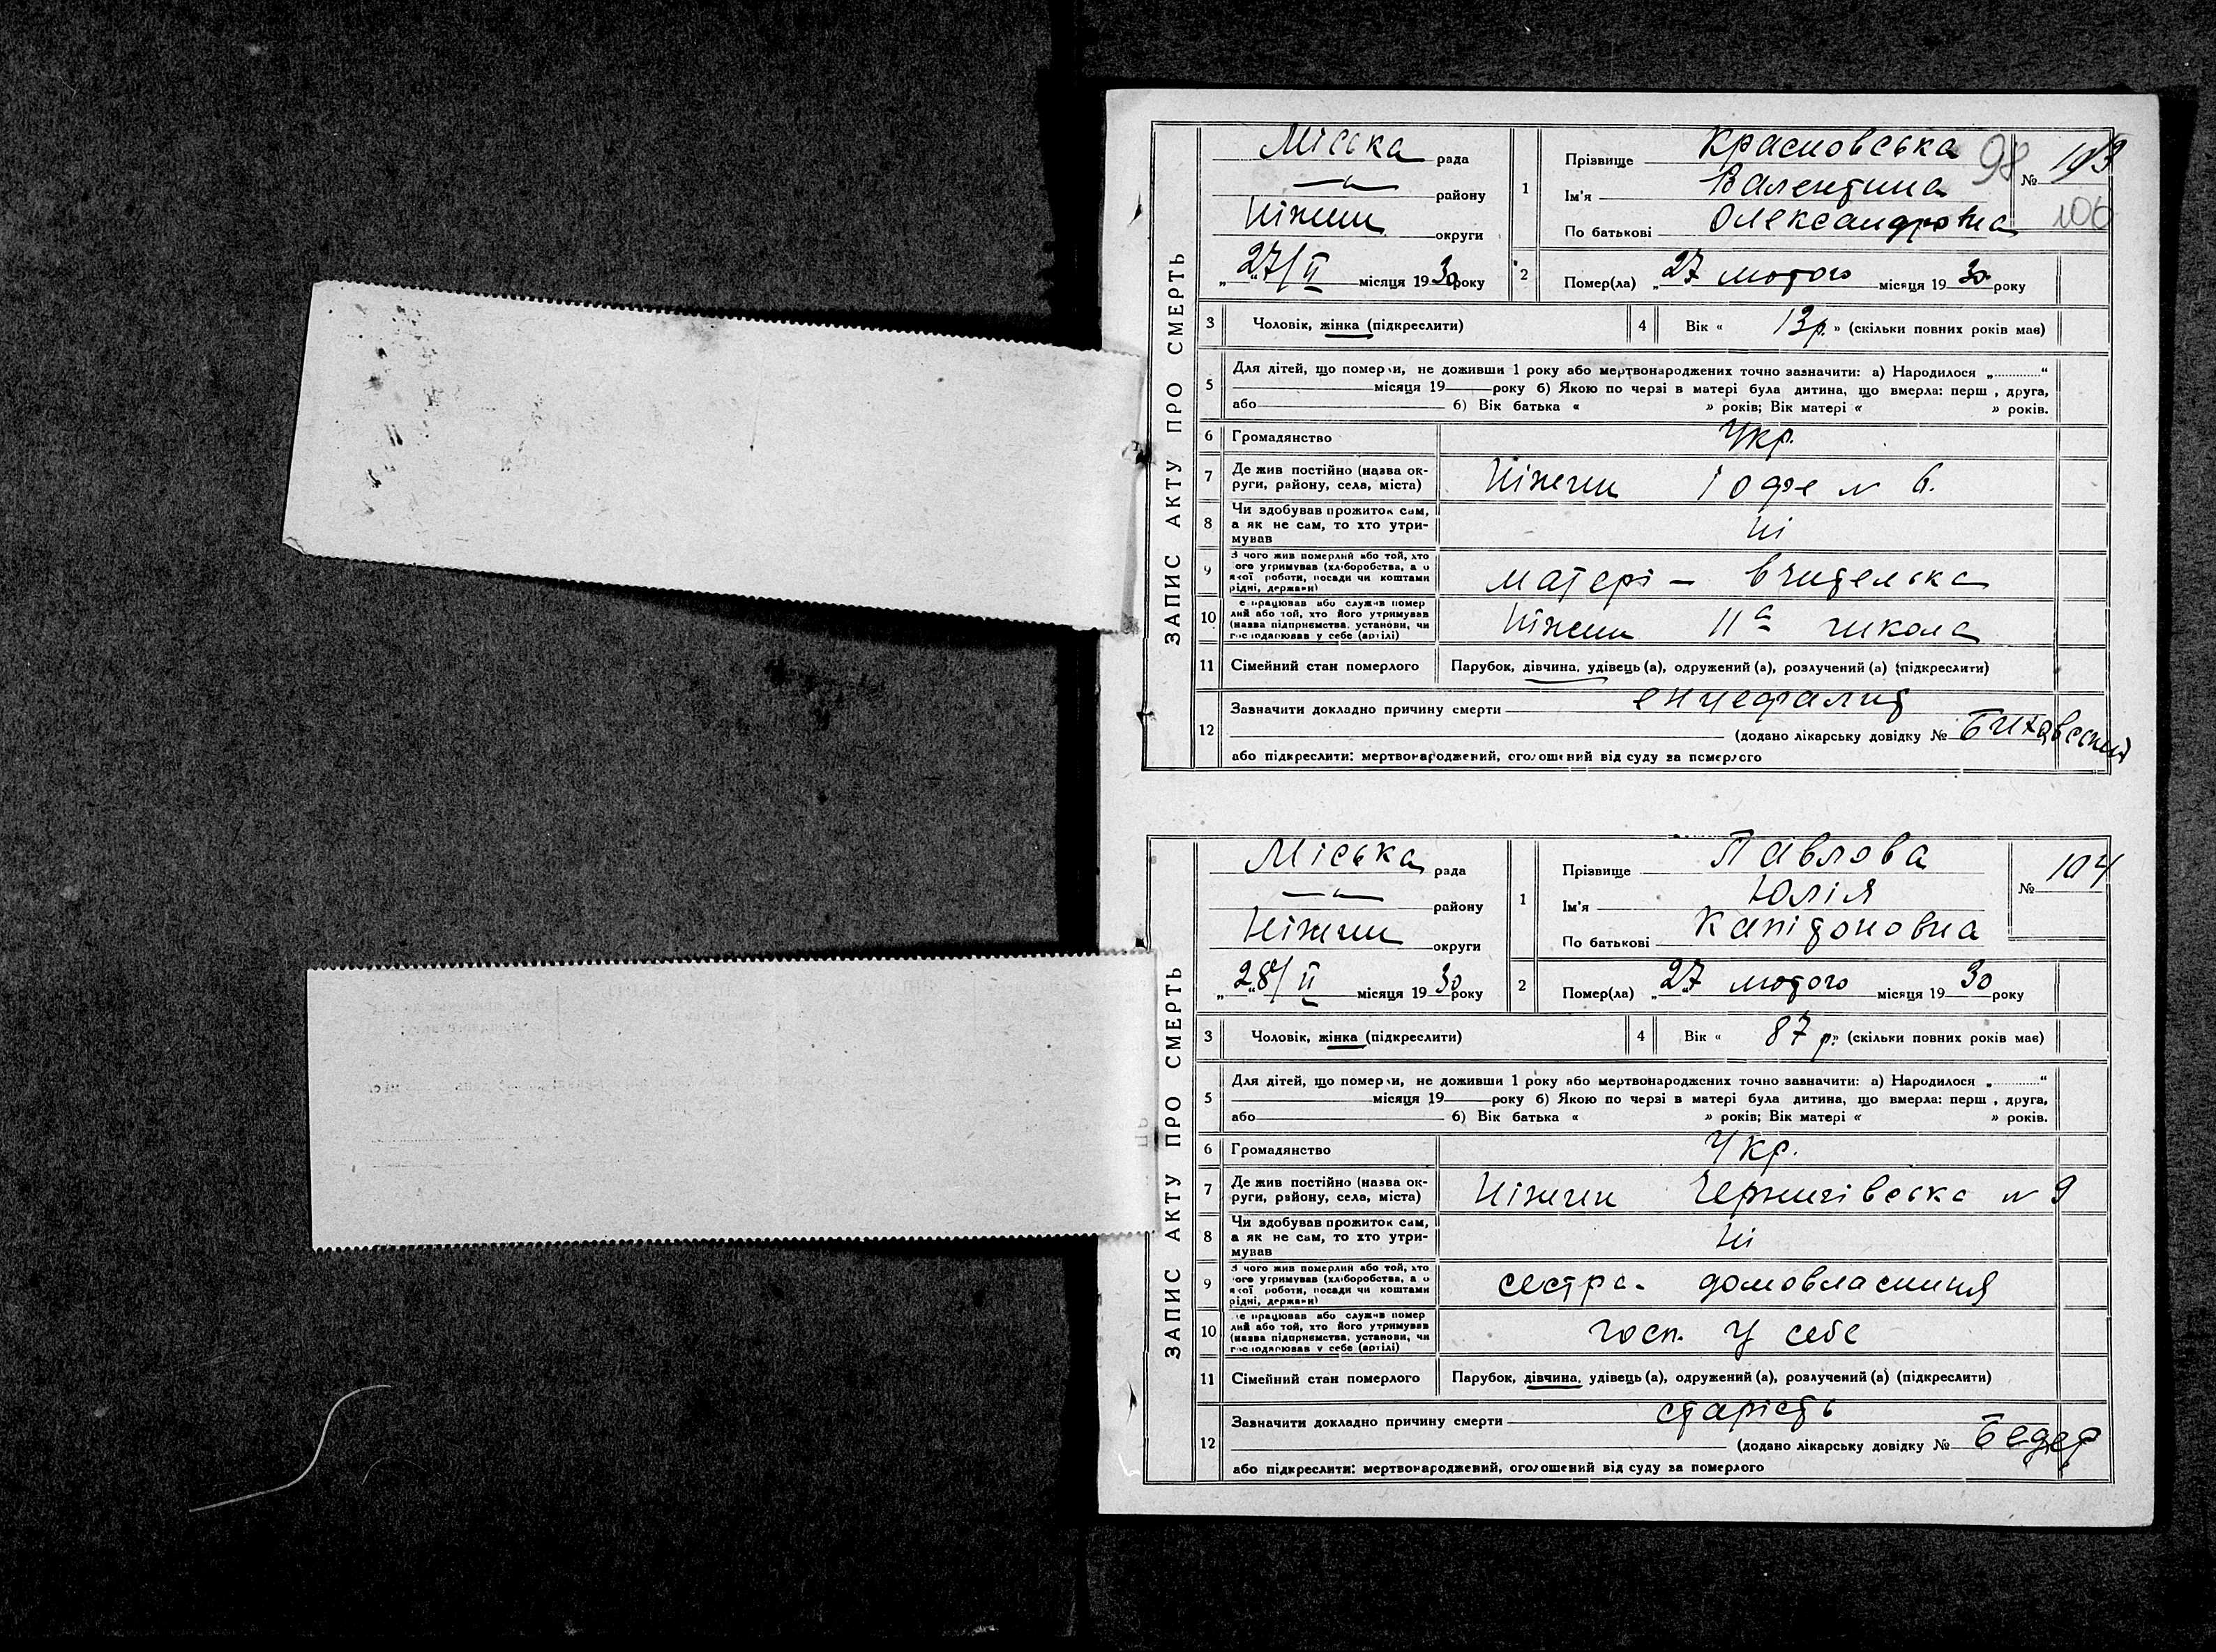 ЗАПИС АКТУ ПРО СМЕРТЬ
Міська рада
района району
Ніжин округи
„27/ІІ“ місяця 1930 року
1 Прізвище Красновська
Ім'я Валентина
По батькові Олександровна
98 № 103
106
2 Помер(ла) „27“ лютого місяця 1930 року
3 Чоловік, жінка (підкреслити)
4 Вік « 13 р. » (скільки повних років має)
5 Для дітей, що померли, не доживши 1 року або мертвонароджених точно зазначити: а) Народилося „............“
місяця 19 року б) Якою по черзі в матері була дитина, що вмерла: перш , друга,
або б) Вік батька « » років; Вік матері « » років.
6 Громадянство Укр.
7 Де жив постійно (назва округи, району, села, міста) Ніжин № 6.
8 Чи здобував прожиток сам, а як не сам, то хто утримував Ні
9 З чого жив померлий або той, хто ого утримував (хліборобства, а о якої роботи, посади чи коштами рідні, держави) матері – вчителька
10 е працював або служив померлий або той, хто його утримував (назва підприємства, установи, чи господарював у себе (артілі) Ніжин 11а школа
11 Сімейний стан померлого Парубок, дівчина, удівець (а), одружений (а), розлучений (а) (підкреслити)
12 Зазначити докладно причину смерти енцефаліт
(додано лікарську довідку №
або підкреслити: мертвонароджений, оголошений від суду за померлого
ЗАПИС АКТУ ПРО СМЕРТЬ
Міська рада
району
Ніжин округи
„28/ІІ“ місяця 1930 року
1 Прізвище Павлова
Ім'я Юлія
По батькові Капітоновна
№ 104
2 Помер(ла) „27“ лютого місяця 1930 року
3 Чоловік, жінка (підкреслити)
4 Вік « 87 р. » (скільки повних років має)
5 Для дітей, що померли, не доживши 1 року або мертвонароджених точно зазначити: а) Народилося „............“
місяця 19 року б) Якою по черзі в матері була дитина, що вмерла: перш , друга,
або б) Вік батька « » років; Вік матері « » років.
6 Громадянство Укр.
7 Де жив постійно (назва округи, району, села, міста) Ніжин Чернигівська № 9
8 Чи здобував прожиток сам, а як не сам, то хто утримував Ні
9 З чого жив померлий або той, хто ого утримував (хліборобства, а о якої роботи, посади чи коштами рідні, держави) сестра. домовласниця
10 е працював або служив померлий або той, хто його утримував (назва підприємства, установи, чи господарював у себе (артілі) госп. у себе
11 Сімейний стан померлого Парубок, дівчина, удівець (а), одружений (а), розлучений (а) (підкреслити)
12 Зазначити докладно причину смерти старість
(додано лікарську довідку №
або підкреслити: мертвонароджений, оголошений від суду за померлого